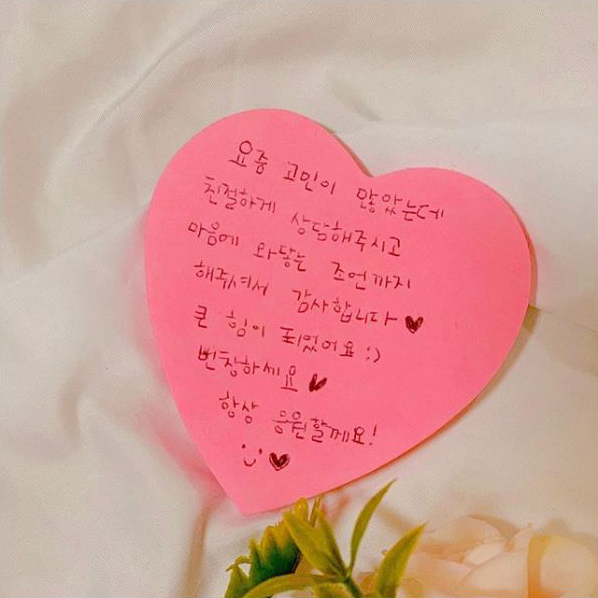 요즘 고민이 많았는데
친절하게 상담해주시고
마음에 와닿는 조언까지
해주셔서 감사합니다 ♥
큰 힘이 되었어요 :)
번창하세요 ♥
항상 응원할께요!